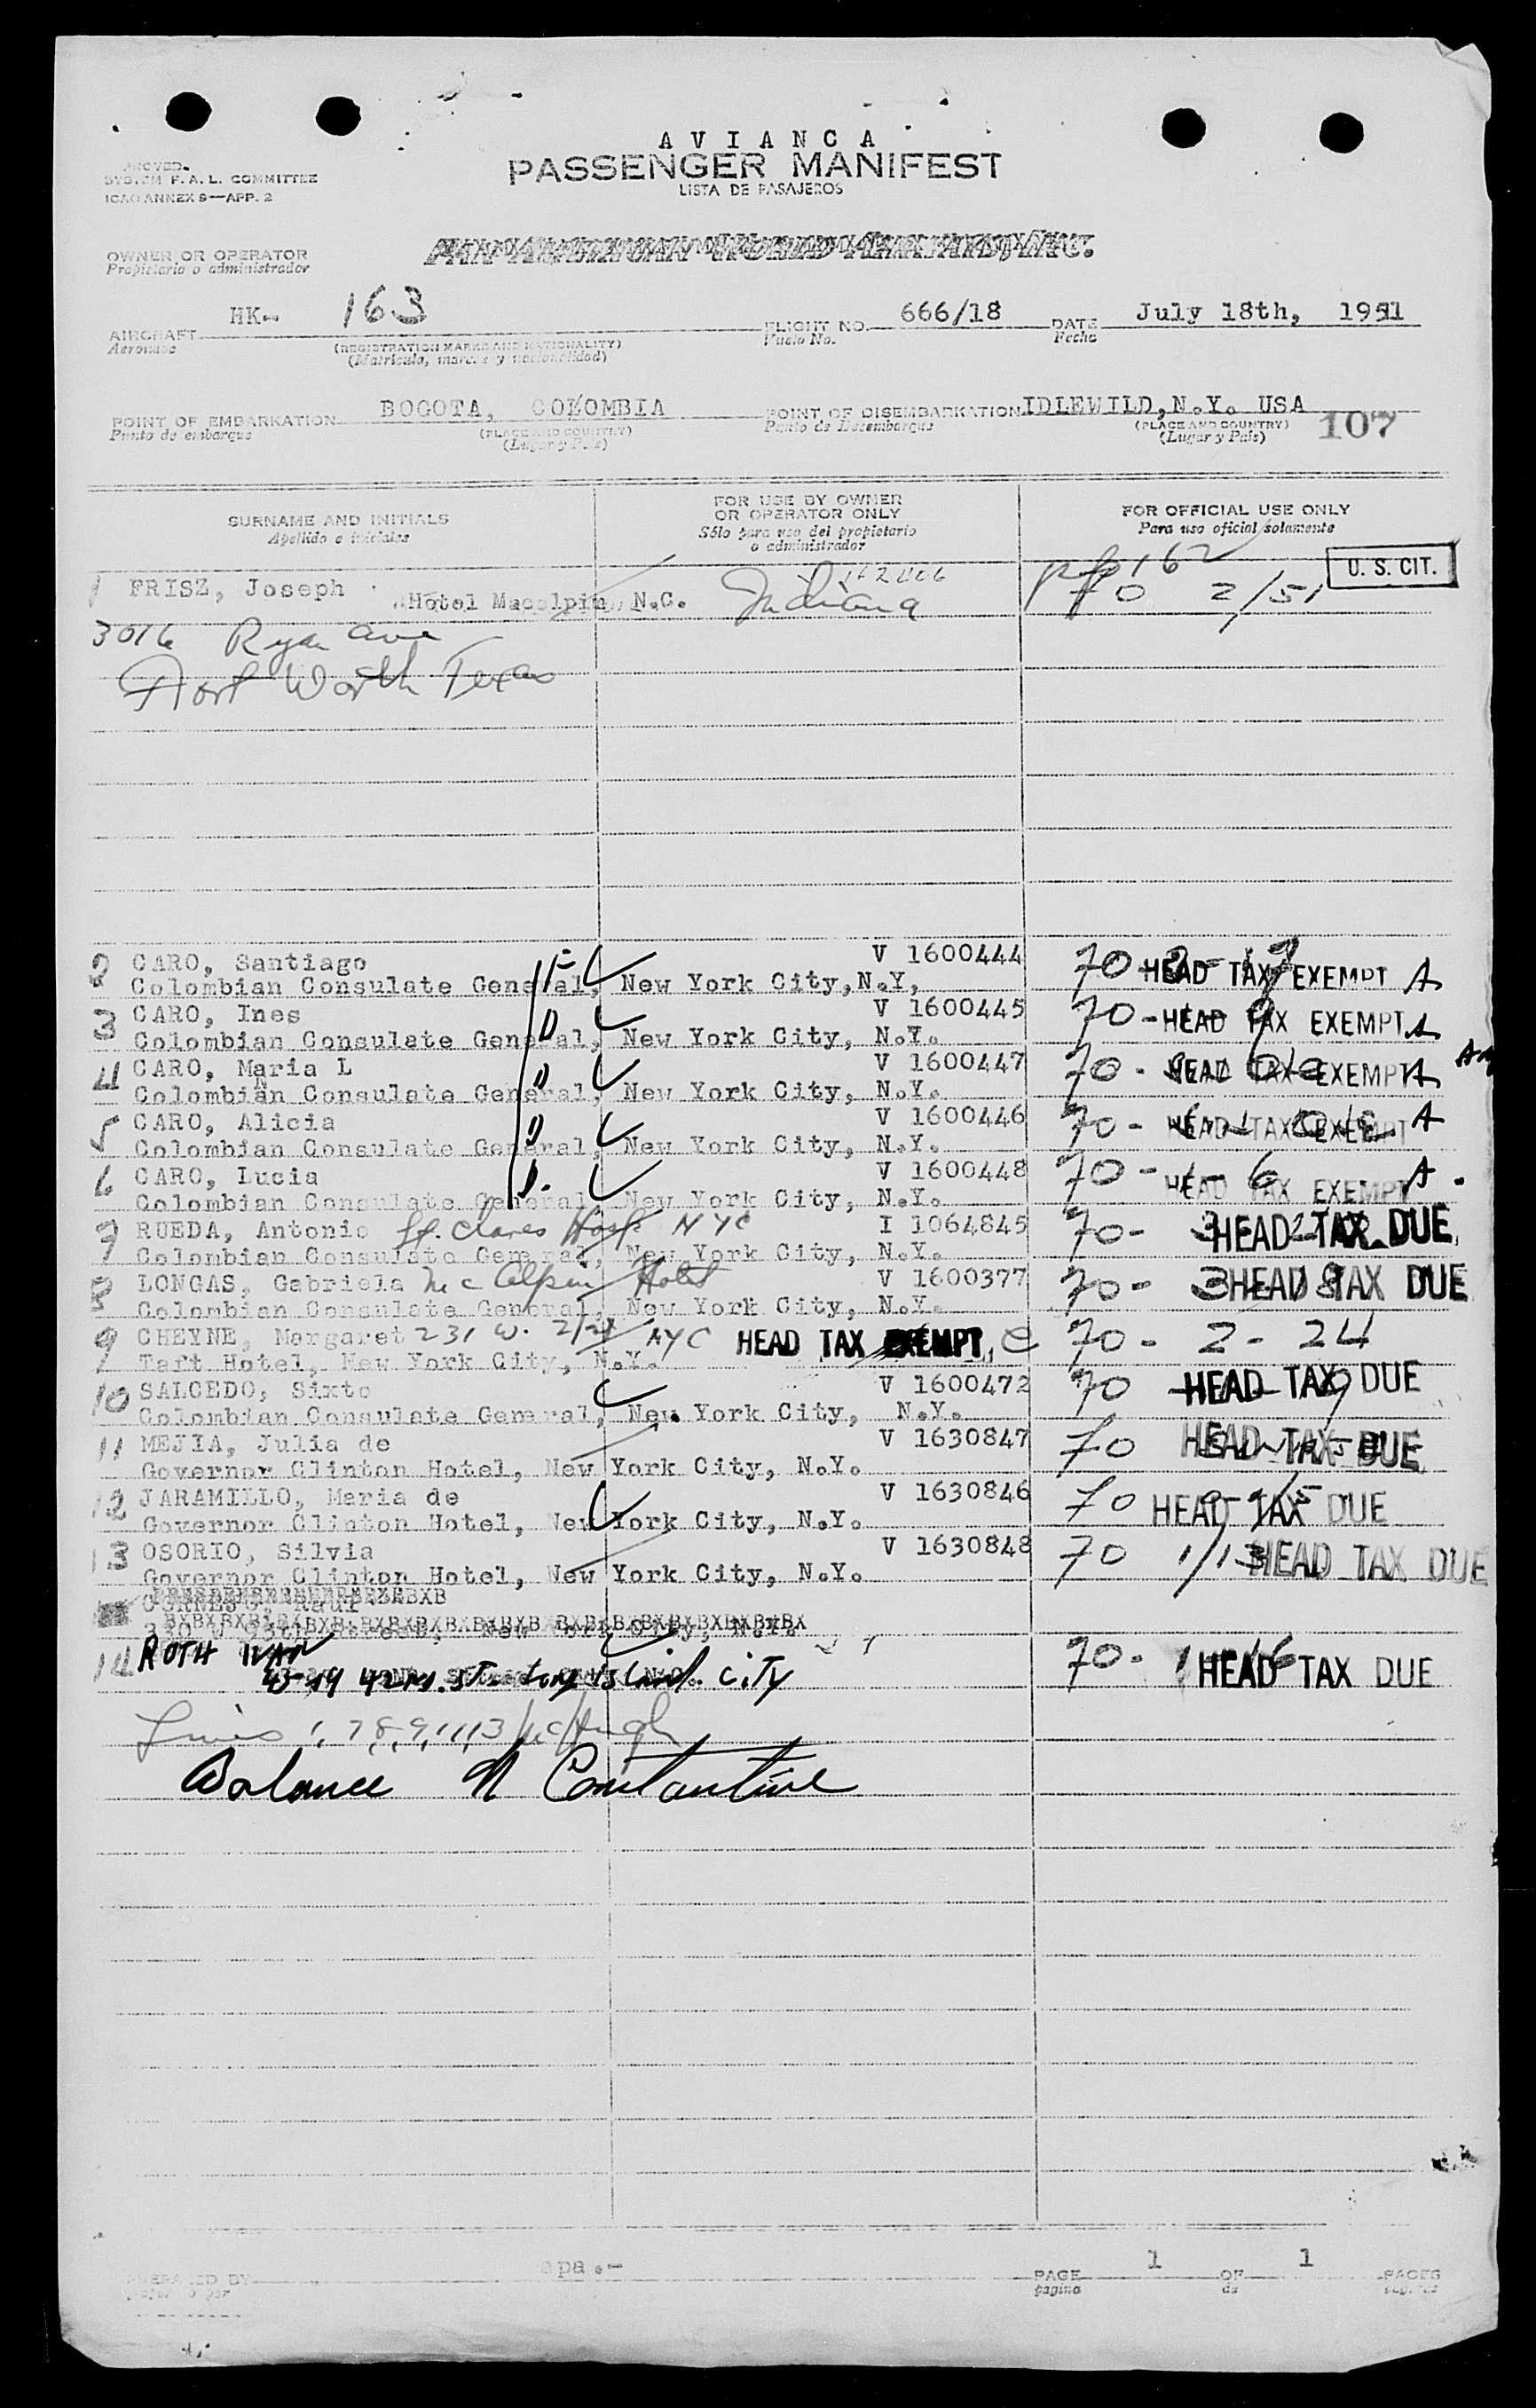 AVIANCA
PASSENGER MANIFEST
LISTA DE PASAJEROS
SYSTEM F.A.L. COMMITTEE
ICAO ANNEX 9—APP. 2
OWNER OR OPERATOR
Propietario o administrador
PAN AMERICAN WORLD AIRWAYS, INC.
AIRCRAFT HK- 163 FLIGHT NO. 666/18 DATE July 18th, 1951
Aeronave (REGISTRATION MARKS AND NATIONALITY) Vuelo No. Fecha
(Matricula, marcas y nacionalidad)
POINT OF EMBARKATION BOGOTA, COLOMBIA POINT OF DISEMBARKATION IDLEWILD, N.Y. USA
Punto de embarque (PLACE AND COUNTRY) Punto de Desembarque (PLACE AND COUNTRY) 107
(Lugar y País) (Lugar y País)
SURNAME AND INITIALS FOR USE BY OWNER OR OPERATOR ONLY FOR OFFICIAL USE ONLY
Apellido e iniciales Sólo para uso del propietario o administrador Para uso oficial solamente
1 FRISZ, Joseph Indiana pp 162 U. S. CIT.
Hotel Macalpin N.C. 70 2/51
3016 Ryan ave
Fort Worth Texas
2 CARO, Santiago V 1600444 70-
Colombian Consulate General, New York City, N.Y, HEAD TAX EXEMPT A
3 CARO, Ines V 1600445 70-
Colombian Consulate General, New York City, N.Y. HEAD TAX EXEMPT A
4 CARO, Maria L V 1600447 70-
Colombian Consulate General, New York City, N.Y. HEAD TAX EXEMPT A
5 CARO, Alicia V 1600446 70-
Colombian Consulate General, New York City, N.Y. HEAD TAX EXEMPT A
6 CARO, Lucia V 1600448 70-1-6
Colombian Consulate General, New York City, N.Y. HEAD TAX EXEMPT A
7 RUEDA, Antonio St. Clares Hosp NYC I 1064845 70-
Colombian Consulate General, New York City, N.Y. HEAD TAX DUE
8 LONGAS, Gabriela Mc Alpin Hotel V 1600377 70-
Colombian Consulate General, New York City, N.Y. HEAD TAX DUE
9 CHEYNE, Margaret 231 W. NYC HEAD TAX EXEMPT C 70-2-24
Taft Hotel, New York City, N.Y.
10 SALCEDO, Sixto V 1600472 70 HEAD TAX DUE
Colombian Consulate General, New York City, N.Y.
11 MEJIA, Julia de V 1630847 70 HEAD TAX DUE
Governor Clinton Hotel, New York City, N.Y.
12 JARAMILLO, Maria de V 1630846 70 HEAD TAX DUE
Governor Clinton Hotel, New York City, N.Y.
13 OSORIO, Silvia V 1630848 70 1/13 HEAD TAX DUE
Governor Clinton Hotel, New York City, N.Y.
14 ROTH IVAN 70- HEAD TAX DUE
42nd. St. Long Island. CiTy
Lines 1, 7, 8, 9, 11, 13
Balance N Constantine
PREPARED BY apa.- PAGE 1 OF 1 PAGES
pagina de